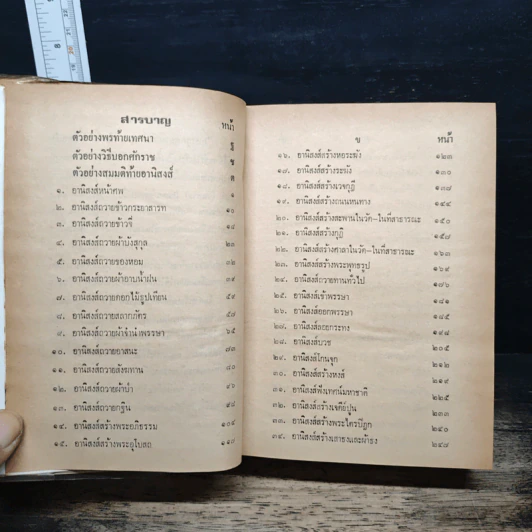 สารบาญ
หน้า
ตัวอย่างพรท้ายเทศนา
ตัวอย่างวิธีบอกศักราช
ตัวอย่างสมมติท้ายอานิสงส์
๑. อานิสงส์หน้าศพ ๑
๒. อานิสงส์ถวายข้าวกระยาสารท ๑๐
๓. อานิสงส์ถวายข้าวจี่
๔. อานิสงส์ถวายผ้าบังสุกุล
๕. อานิสงส์ถวายของหอม
๖. อานิสงส์ถวายผ้าอาบน้ำฝน
๗. อานิสงส์ถวายดอกไม้ธูปเทียน
๘. อานิสงส์ถวายสลากภัตร
๙. อานิสงส์ถวายผ้าจำนำพรรษา ๖๕
๑๐. อานิสงส์ถวายอาสนะ
๑๑. อานิสงส์ถวายสังฆทาน
๑๒. อานิสงส์ถวายผ้าป่า
๑๓. อานิสงส์ถวายกฐิน
๑๔. อานิสงส์สร้างพระอภิธรรม
๑๕. อานิสงส์สร้างพระอุโบสถ
ข หน้า
๑๖. อานิสงส์สร้างหอระฆัง ๑๒๓
๑๗. อานิสงส์สร้างระฆัง ๑๓๐
๑๘. อานิสงส์สร้างเวจกุฎี ๑๓๗
๑๙. อานิสงส์สร้างถนนหนทาง ๑๔๔
๒๐. อานิสงส์สร้างสะพานในวัด-ในที่สาธารณะ ๑๕๐
๒๑. อานิสงส์สร้างกุฏี ๑๕๗
๒๒. อานิสงส์สร้างศาลาในวัด-ในที่สาธารณะ ๑๖๓
๒๓. อานิสงส์สร้างพระพุทธรูป ๑๖๙
๒๔. อานิสงส์ถวายทานทั่วไป ๑๗๖
๒๕. อานิสงส์เข้าพรรษา ๑๘๑
๒๖. อานิสงส์ออกพรรษา
๒๗. อานิสงส์ลอยกระทง
๒๘. อานิสงส์บวช ๒๐๕
๒๙. อานิสงส์โกนจุก ๒๑๒
๓๐. อานิสงส์สร้างหงส์ ๒๑๙
๓๑. อานิสงส์ฟังเทศน์มหาชาติ ๒๒๕
๓๒. อานิสงส์สร้างเจดีย์ปูน ๒๓๓
๓๓. อานิสงส์สร้างพระไตรปิฎก ๒๔๐
๓๔. อานิสงส์สร้างเสาธงและผ้าธง ๒๔๗